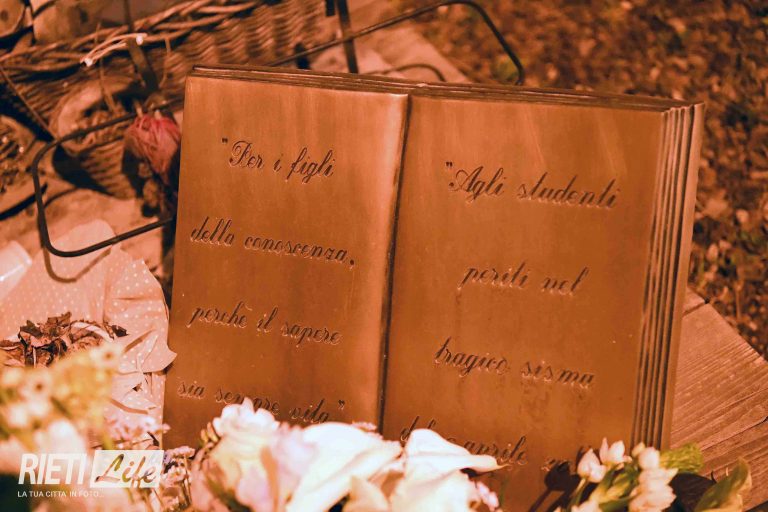 "Per i figli
della conoscenza,
perchè il sapere
sia sempre vita"
"Agli studenti
periti nel
tragico sisma
aprile
RIETI Life
LA TUA CITTÀ IN FOTO...